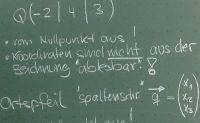 Q(-2 | 4 | 3)
• vom Nullpunkt aus!
• Koordinaten sind nicht aus der
Zeichnung "ablesbar"!
Ortspfeil "Spaltenschr." q⃗ = (x₁ x₂ x₃)